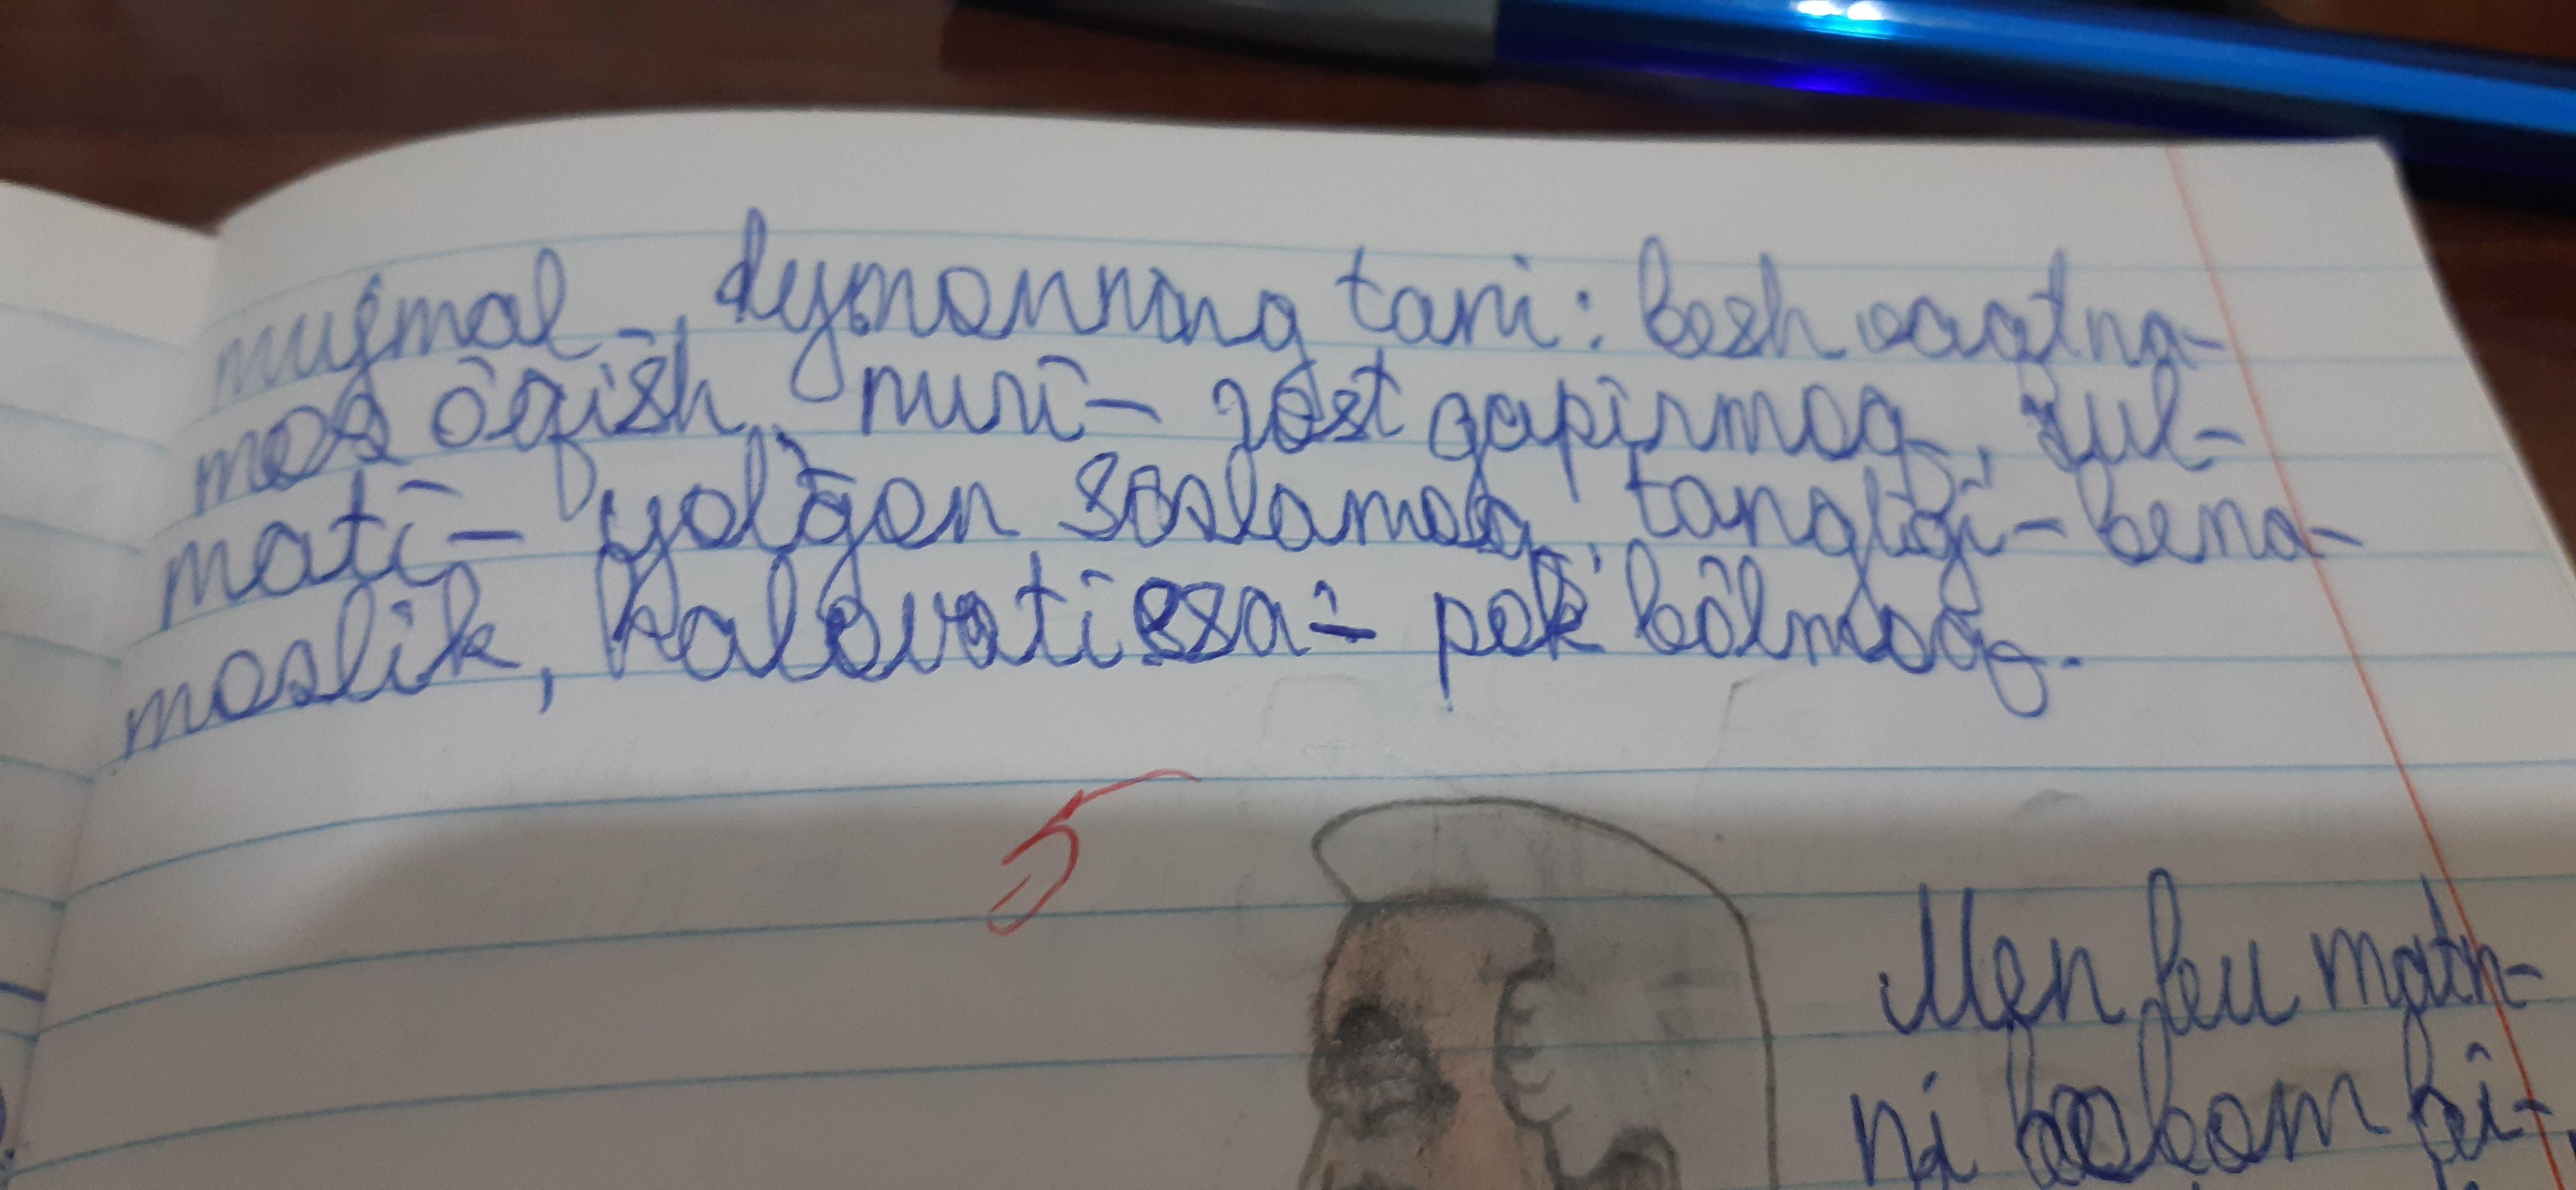 mujmal, Iymonning tani: besh vaqt na-
moz ôqish, nuri - rost gapirmoq, zul-
mati - yolg'on sôzlamoq, tangligi - bena-
mozlik, halovati esa - pok bôlmoq.
5
Men bu matn-
ni bobom bi-